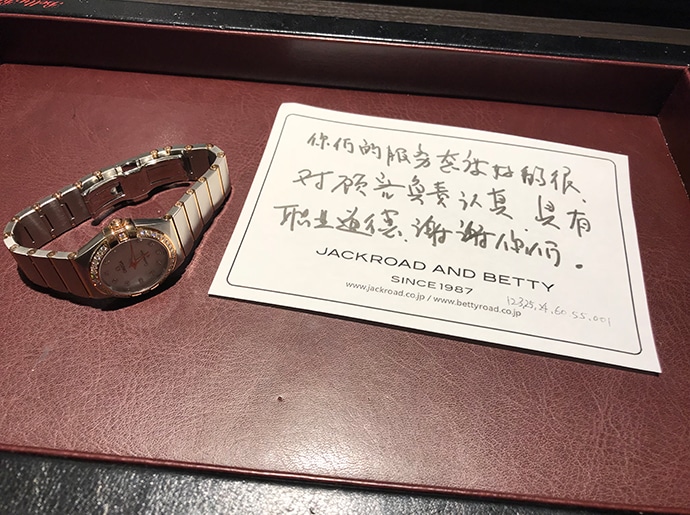 你们的服务态度好的很、
对顾客负责认真.具有
职业道德、谢谢你们。
JACKROAD AND BETTY
SINCE 1987
www.jackroad.co.jp / www.bettyroad.co.jp